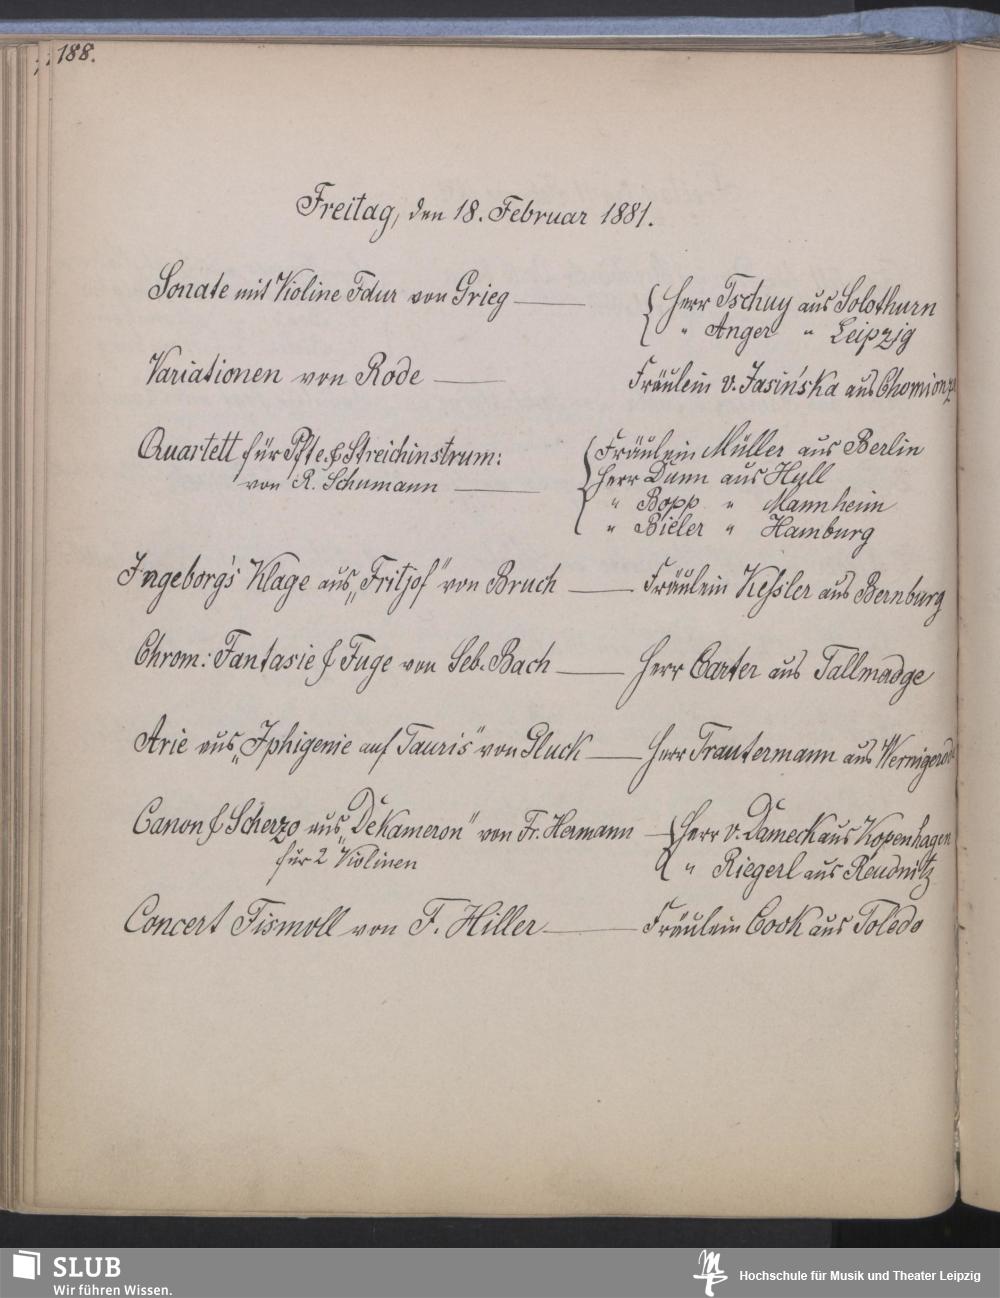 188.
Freitag, den 18. Februar 1881.
Sonate mit Violine Fdur von Grieg — { Herr Tschuy aus Solothurn
" Anger " Leipzig
Variationen von Rode — Fräulein v. Jasińska aus Chomionza
Quartett für Pfte. & Streichinstrum: { Fräulein Müller aus Berlin
von R. Schumann — Herr Dunn aus Hull
" Bopp " Mannheim
" Bieler " Hamburg
Ingeborg's Klage aus „Fritjof" von Bruch — Fräulein Keßler aus Bernburg
Chrom: Fantasie & Fuge von Seb. Bach — Herr Carter aus Tallmadge
Arie aus „Iphigenie auf Tauris" von Gluck — Herr Trautermann aus Wernigerode
Canon & Scherzo aus „Dekameron" von Fr. Hermann — { Herr v. Dameck aus Kopenhagen
für 2 Violinen " Riegerl aus Reudnitz
Concert Fismoll von F. Hiller — Fräulein Cook aus Toledo
SLUB
Wir führen Wissen.
Hochschule für Musik und Theater Leipzig